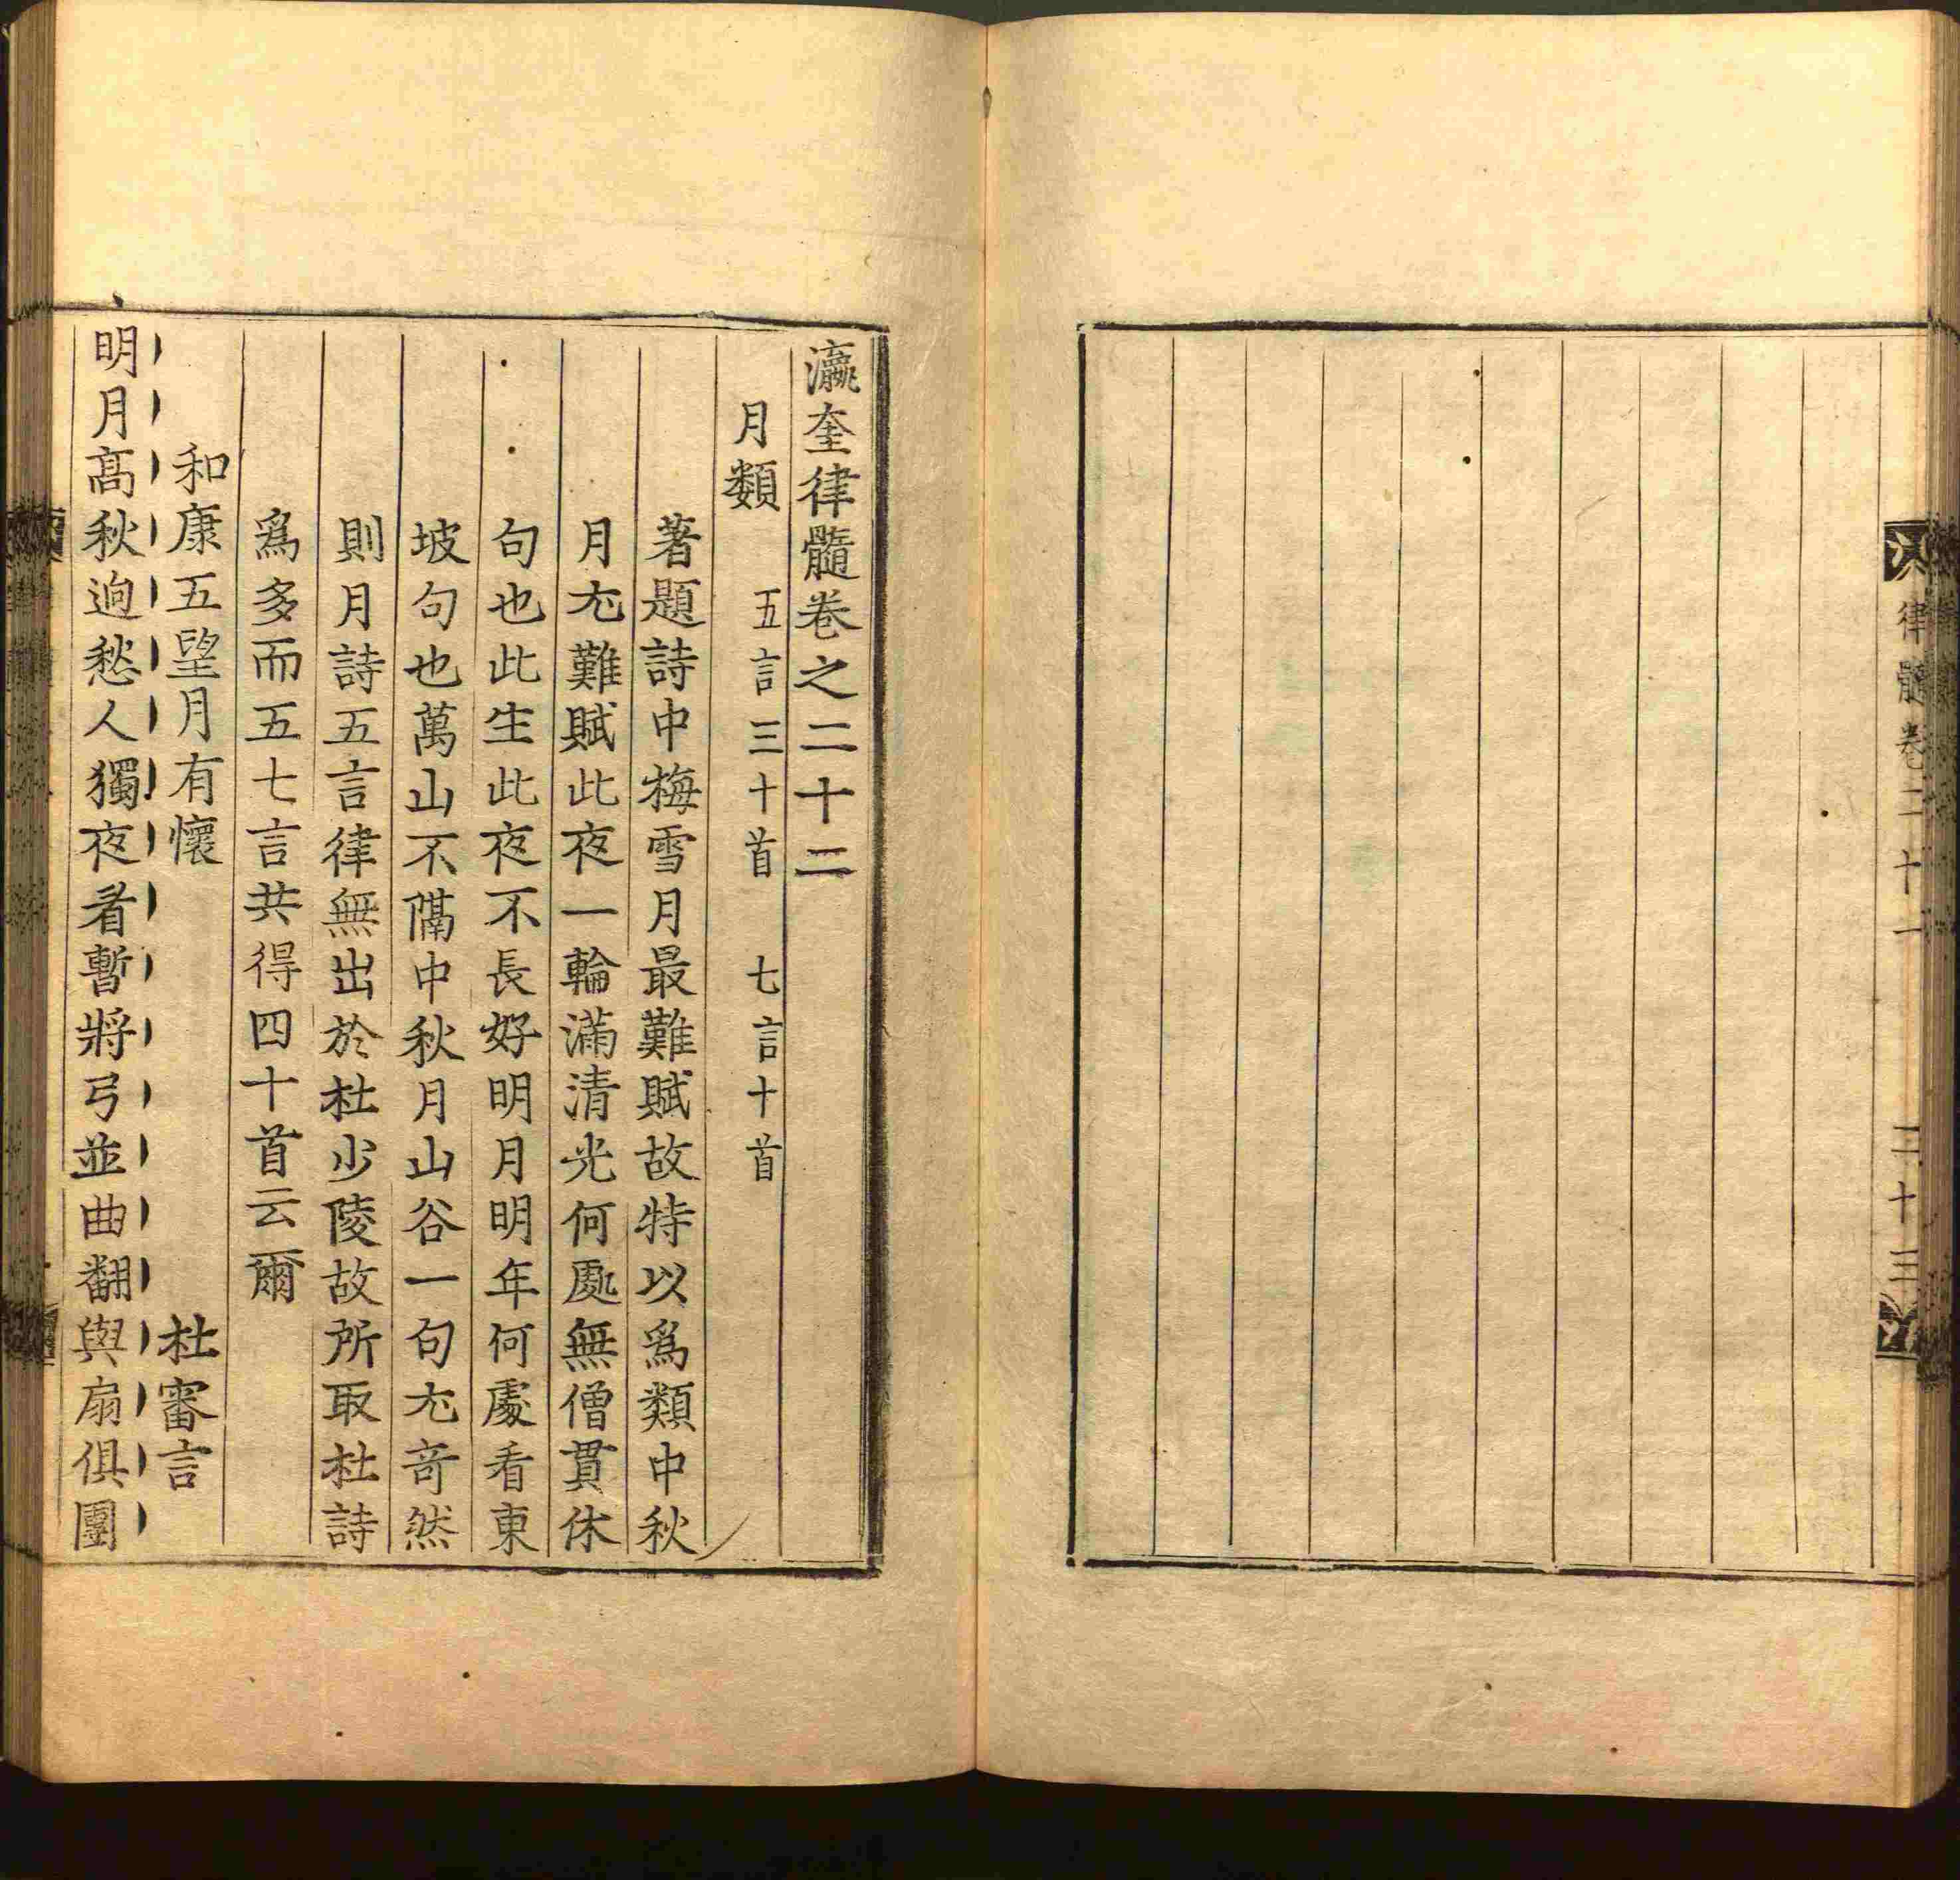 律髓卷二十一
三十三
瀛奎律髓卷之二十二
月類　五言三十首　七言十首
著題詩中梅雪月最難賦故特以爲類中秋
月尢難賦此夜一輪滿清光何處無僧貫休
句也此生此夜不長好明月明年何處看東
坡句也萬山不隔中秋月山谷一句尢竒然
則月詩五言律無出於杜少陵故所取杜詩
爲多而五七言共得四十首云爾
和康五望月有懷　杜審言
明月髙秋逈愁人獨夜看暫將弓並曲翻與扇俱團